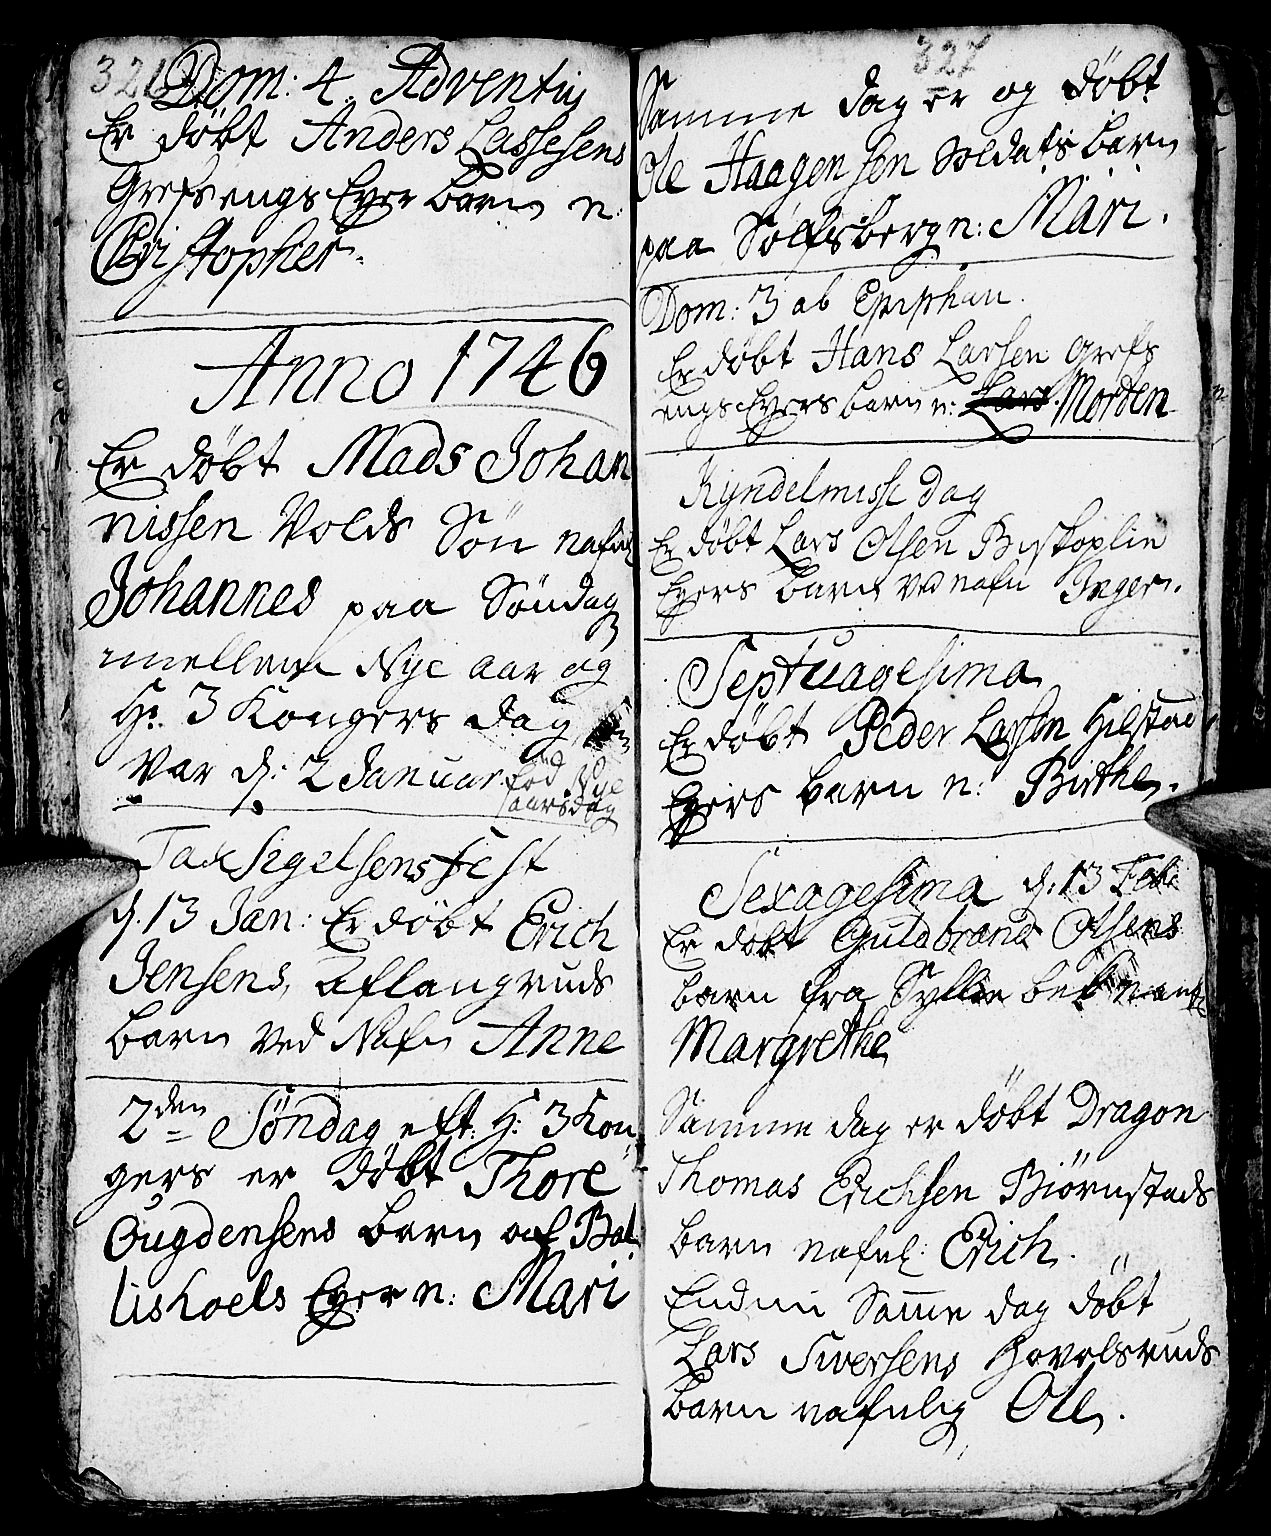 326
Dom: 4. Adventus
Er døbt Anders Lassesens
Grefsengs Eyer barn n:
Christopher.
Anno 1746
Er døbt Mads Johan
nissen Volds Søn nafnl
Johannes paa Søndag
imellem Nye aar og
H: 3 Kongers dag
Var d: 2 Januar.
fød Nye
aarsdag
Taksigelsens fest
d. 13 Jan: Er døbt Erich
Jensens, Aflangruds
barn ved Nafn Anne
2den Søndag eft: H: 3 Kon
gers er døbt Thore
Gugdensens barn af Bal
lishoels Eyer n: Mari
327
Samme dag er og døbt
Ole Haagensen Soldats barn
paa Sølfsberg n: Mari.
Dom: 3 ab Epiphan.
Er døbt Hans Larsen Grefs
engs Eyers barn n: Lars. Morden
Kyndelmisse dag
Er døbt Lars Olsen Biskoplie
Eyers barn ved nafn Inger.
Septuagesima
Er døbt Peder Larsen Hilstad
Eyers barn n: Birthe.
Sexagesima d. 13 Feb:
Er døbt Guldbrand Olsens
barn fra Sylliebek
Margrethe
Samme dag er døbt Dragon
Thomas Erichsen Biørnstads
barn nafnl: Erich.
Endnu Samme dag døbt
Lars Siversens Hovelsruds
barn nafnlig Ole.